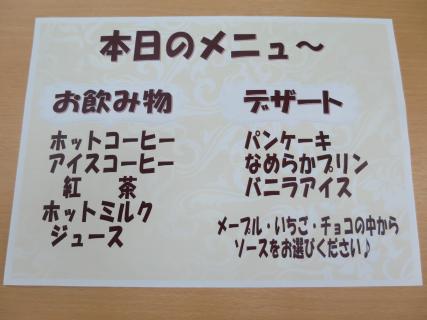 本日のメニュ～
お飲み物
ホットコーヒー
アイスコーヒー
紅　茶
ホットミルク
ジュース
デザート
パンケーキ
なめらかプリン
バニラアイス
メープル・いちご・チョコの中から
ソースをお選びください♪